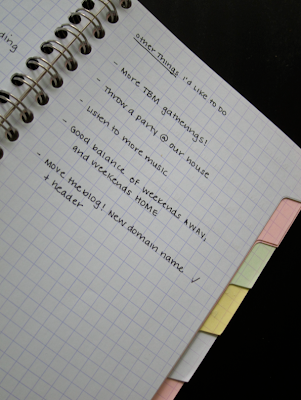 ding
other things i'd like to do
- More TBM gatherings!
- Throw a party @ our house
- Listen to more music
- Good balance of weekends AWAY,
and weekends HOME
- Move the blog! New domain name ✓
+ header